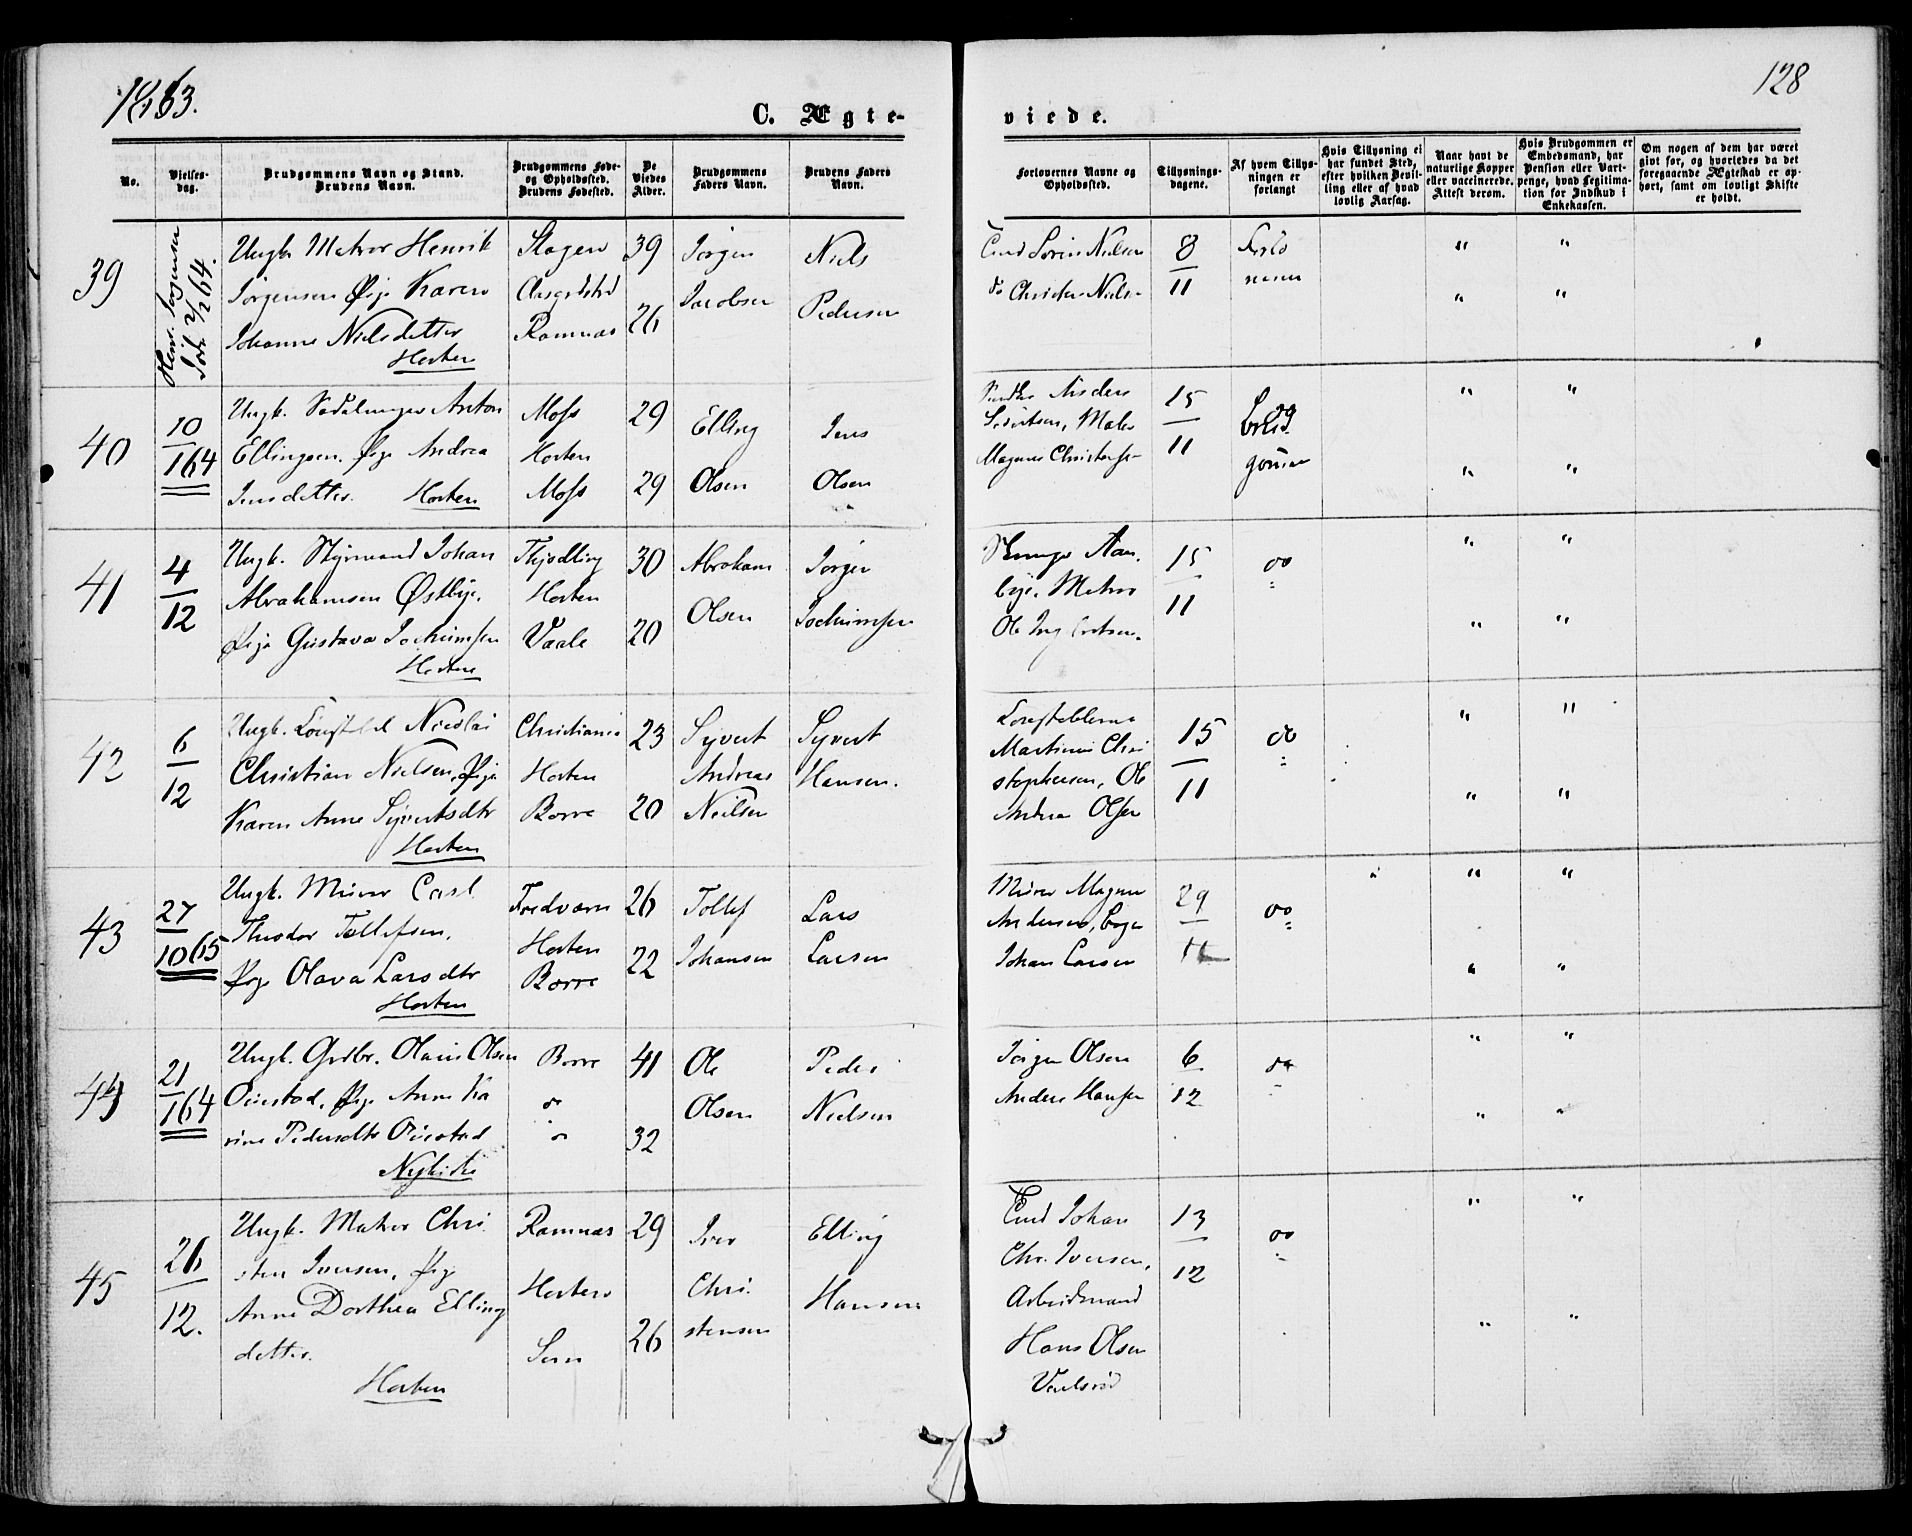 1863.
128
C. Ægte-
viede.
No.
Vielses-
dag.
Brudgommens Navn og Stand.
Brudens Navn.
Brudgommens Føde-
og Opholdssted.
Brudens Fødested.
De
Viedes
Alder.
Brudgommens
Faders Navn.
Brudens Faders
Navn.
Forlovernes Navne og
Opholdssted.
Tillysnings-
dagene.
Af hvem Tillys-
ningen er
forlangt
Hvis Tillysning ei
har fundet Sted,
efter hvilken Bevil-
ling eller af hvad
lovlig Aarsag.
Naar havt de
naturlige Kopper
eller vaccinerede.
Attest derom.
Hvis Brudgommen er
Embedsmand, har
Pension eller Vart-
penge, hvad Legitima-
tion for Indskud i
Enkekassen.
Om nogen af dem har været
givt før, og hvorledes da det
foregaaende Ægteskab er op-
hørt, samt om lovligt Skifte
er holdt.
39
2/2 64.
Ungk. Matros Henrik
Jørgensen Pige Karen
Johanne Nielsdatter
Horten
Aasgrdstrd
Ramnæs
39
26
Jørgen
Jacobsen
Niels
Pedersen
Søren Nielsen
do Christen Nielsen
8
11
" "
" "
40
10
1 64
Ungk. Anton
Ellingsen. Pige Andrea
Jensdatter. Horten
Moss
Horten
Moss
29
29
Elling
Olsen
Jens
Olsen
Anders
Magnus
15
11
Brud
gommen
" "
" "
41
4
12
Ungk. Styrmand Johan
Abrahamsen Østbye.
Pige Gustava Jochumsen
Horten
Thjødling
Horten
Vaale
30
20
Abraham
Olsen
Jørgen
Jochumsen
bye. Matros
15
11
do
" "
" "
42
6
12
Ungk. Nicolai
Christian Nielsen, Pige
Karen Anne Syvertsdtr
Horten
Christiania
Horten
Borre
23
20
Syvert
Andreas
Neilsen
Syvert
Hansen.
Martinus Chri
stophersen, Ole
Andrea Olsen
15
11
do
" "
" "
43
27
10 65
Ungk. Murer Carl
Theodor Tollefsen.
Pige Olava Larsdtr
Horten
Fredværn
Horten
Borre
26
22
Tollef
Johansen
Lars
Larsen
Murer Magnus
Andersen,
Johan Larsen
29
11
do
" "
" "
44
21
1 64
Ungk. Grdbr. Olaus Olsen
Anne Ka
rine Pedersdtr
Nykirke
Borre
do
do
41
32
Ole
Olsen
Peder
Nielsen
Jørgen Olsen
Anders Hansen
6
12
do
" "
" "
45
26
12.
Ungk. Matros Chri
sten Iversen, Pige
Anne Dorthea Elling
datter.
Horten
Ramnæs
Horten
Sem
29
26
Iver
Chri
stensen
Elling
Hansen
Johan
Chr. Iversen,
Arbeidsmand
Hans Olsen
13
12
do
" "
" "